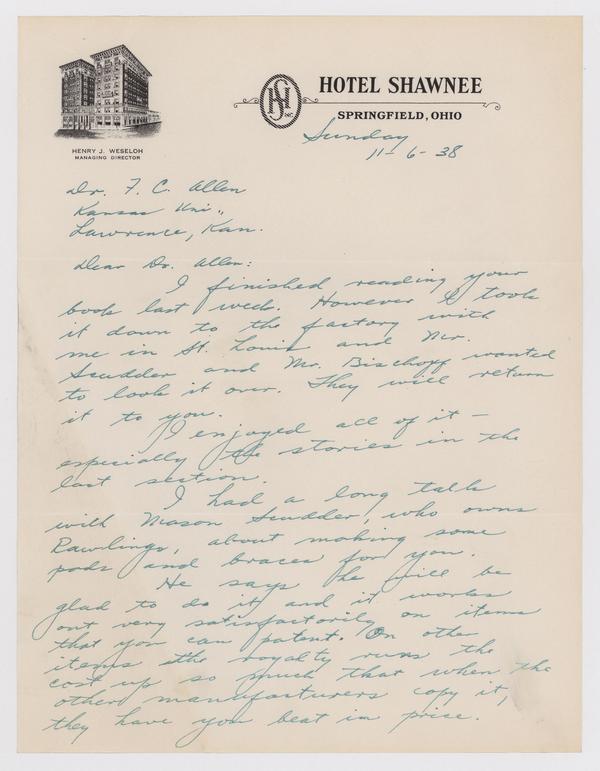 HOTEL SHAWNEE
HS
INC.
SPRINGFIELD, OHIO
HENRY J. WESELOH
MANAGING DIRECTOR
Sunday
11-6-38
Dr. F. C. Allen
Kansas Uni.,
Lawrence, Kan.
Dear Dr. Allen:
I finished reading your
book last week. However I took
it down to the factory with
me in St. Louis and Mr.
Scudder and Mr. Bischoff wanted
to look it over. They will return
it to you.
I enjoyed all of it –
especially the stories in the
last section.
I had a long talk
with Mason Scudder, who owns
Rawlings, about making some
pads and braces for you.
He says he will be
glad to do it and it works
out very satisfactorily on items
that you can patent. On other
items the royalty runs the
cost up so much that when the
other manufacturers copy it,
they have you beat in price.